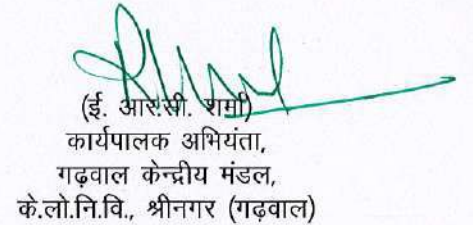 (ई. आर.सी. शर्मा)
कार्यपालक अभियंता,
गढ़वाल केन्द्रीय मंडल,
के.लो.नि.वि., श्रीनगर (गढ़वाल)